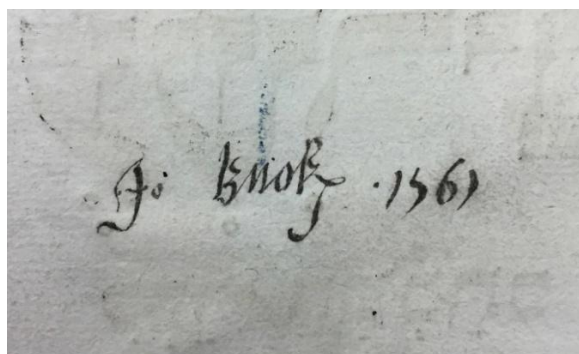 Jo Knokꝭ ·1561